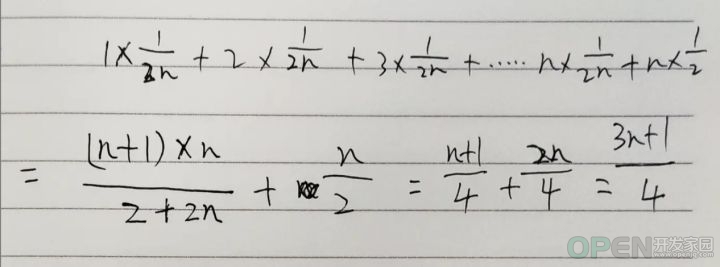 1×1/2n + 2×1/2n + 3×1/2n + ...... n×1/2n + n×1/2
= (n+1)×n/2+2n + n/2 = n+1/4 + 2n/4 = 3n+1/4
OPEN开发家园